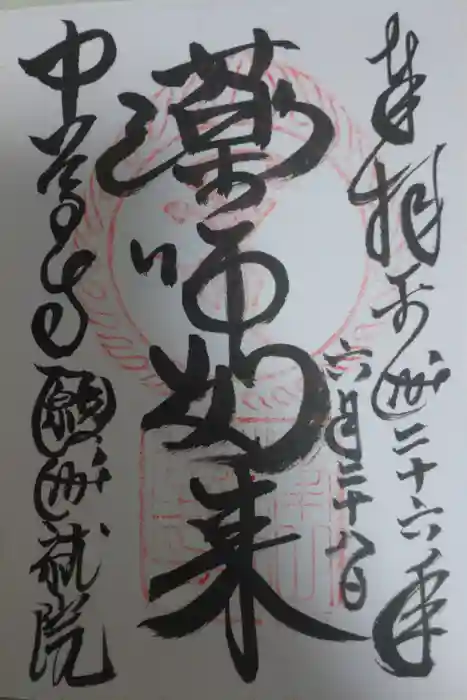 奉拝 平成二十六年
六月二十八日
薬師如来
中尊寺 願成就院